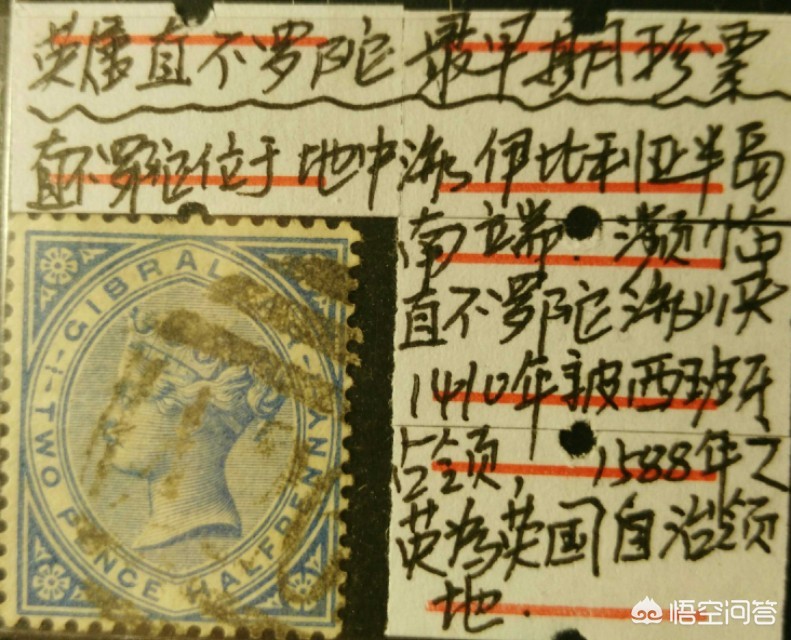 英属直不罗陀 最早期珍票
直不罗陀位于地中海伊比利亚半岛
南端.濒临
直不罗陀海峡
1410年被西班牙
占领, 1588年之
英为英国自治领
地.
GIBRALTAR
TWO PENCE HALFPENNY
悟空问答